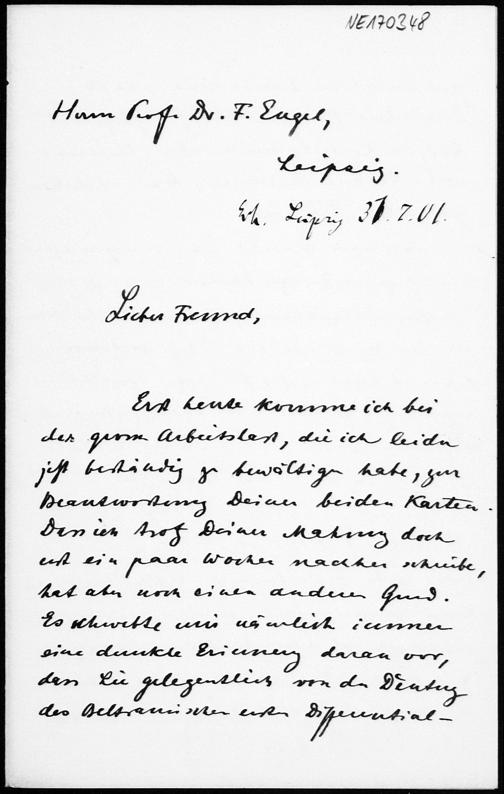 NE170348
Herrn Prof. Dr. F. Engel,
Leipzig.
Erh. Leipzig 31.7.01.
Lieber Freund,
Erst heute komme ich bei
der grossen Arbeitslast, die ich leider
jetzt beständig zu bewältigen habe, zur
Beantwortung Deiner beiden Karten.
Dass ich trotz Deiner Mahnung doch
erst ein paar Wochen nachher schreibe,
hat aber noch einen anderen Grund.
Es schwebte mir nämlich immer
eine dunkle Erinnerung daran vor,
dass Lie gelegentlich von der Deutung
des Beltramischen ersten Differential-